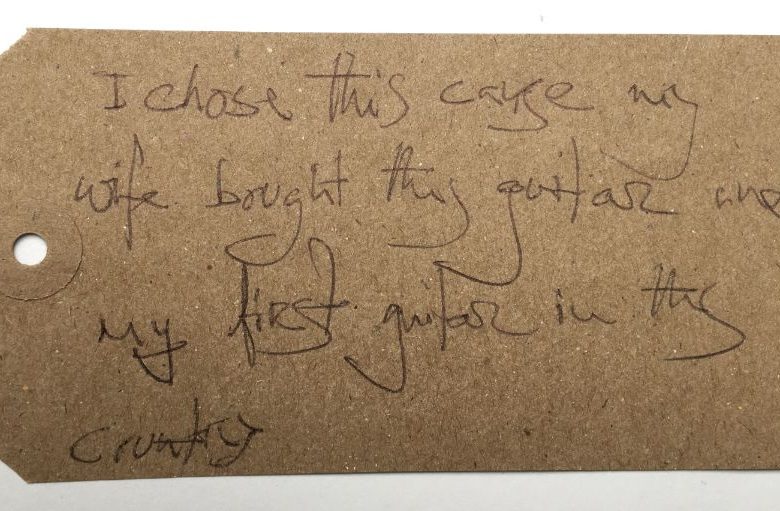 I chose this cause my
wife bought this guitar and
my first guitar in this
country